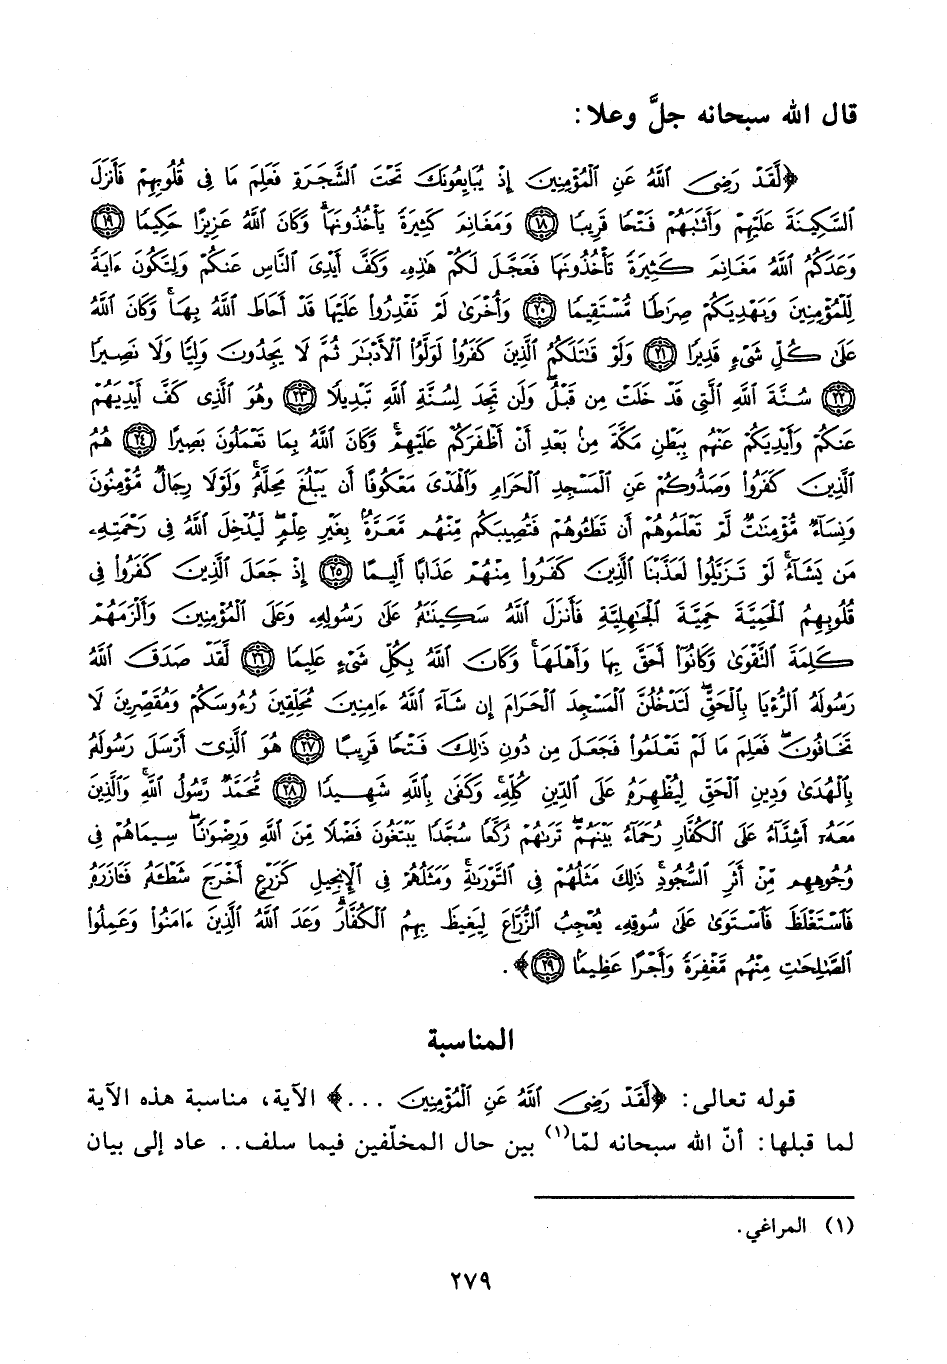 قال الله سبحانه جلَّ وعلا:
﴿لَّقَدْ رَضِيَ ٱللَّهُ عَنِ ٱلْمُؤْمِنِينَ إِذْ يُبَايِعُونَكَ تَحْتَ ٱلشَّجَرَةِ فَعَلِمَ مَا فِى قُلُوبِهِمْ فَأَنزَلَ
ٱلسَّكِينَةَ عَلَيْهِمْ وَأَثَـٰبَهُمْ فَتْحًا قَرِيبًا ۝١٨ وَمَغَانِمَ كَثِيرَةً يَأْخُذُونَهَا ۗ وَكَانَ ٱللَّهُ عَزِيزًا حَكِيمًا ۝١٩
وَعَدَكُمُ ٱللَّهُ مَغَانِمَ كَثِيرَةً تَأْخُذُونَهَا فَعَجَّلَ لَكُمْ هَـٰذِهِۦ وَكَفَّ أَيْدِىَ ٱلنَّاسِ عَنكُمْ وَلِتَكُونَ ءَايَةً
لِّلْمُؤْمِنِينَ وَيَهْدِيَكُمْ صِرَٰطًا مُّسْتَقِيمًا ۝٢٠ وَأُخْرَىٰ لَمْ تَقْدِرُوا۟ عَلَيْهَا قَدْ أَحَاطَ ٱللَّهُ بِهَا ۚ وَكَانَ ٱللَّهُ
عَلَىٰ كُلِّ شَىْءٍ قَدِيرًا ۝٢١ وَلَوْ قَـٰتَلَكُمُ ٱلَّذِينَ كَفَرُوا۟ لَوَلَّوُا۟ ٱلْأَدْبَـٰرَ ثُمَّ لَا يَجِدُونَ وَلِيًّا وَلَا نَصِيرًا
۝٢٢ سُنَّةَ ٱللَّهِ ٱلَّتِى قَدْ خَلَتْ مِن قَبْلُ ۖ وَلَن تَجِدَ لِسُنَّةِ ٱللَّهِ تَبْدِيلًا ۝٢٣ وَهُوَ ٱلَّذِى كَفَّ أَيْدِيَهُمْ
عَنكُمْ وَأَيْدِيَكُمْ عَنْهُم بِبَطْنِ مَكَّةَ مِنۢ بَعْدِ أَنْ أَظْفَرَكُمْ عَلَيْهِمْ ۚ وَكَانَ ٱللَّهُ بِمَا تَعْمَلُونَ بَصِيرًا ۝٢٤ هُمُ
ٱلَّذِينَ كَفَرُوا۟ وَصَدُّوكُمْ عَنِ ٱلْمَسْجِدِ ٱلْحَرَامِ وَٱلْهَدْىَ مَعْكُوفًا أَن يَبْلُغَ مَحِلَّهُۥ ۚ وَلَوْلَا رِجَالٌ مُّؤْمِنُونَ
وَنِسَآءٌ مُّؤْمِنَـٰتٌ لَّمْ تَعْلَمُوهُمْ أَن تَطَـُٔوهُمْ فَتُصِيبَكُم مِّنْهُم مَّعَرَّةٌۢ بِغَيْرِ عِلْمٍ ۖ لِّيُدْخِلَ ٱللَّهُ فِى رَحْمَتِهِۦ
مَن يَشَآءُ ۚ لَوْ تَزَيَّلُوا۟ لَعَذَّبْنَا ٱلَّذِينَ كَفَرُوا۟ مِنْهُمْ عَذَابًا أَلِيمًا ۝٢٥ إِذْ جَعَلَ ٱلَّذِينَ كَفَرُوا۟ فِى
قُلُوبِهِمُ ٱلْحَمِيَّةَ حَمِيَّةَ ٱلْجَـٰهِلِيَّةِ فَأَنزَلَ ٱللَّهُ سَكِينَتَهُۥ عَلَىٰ رَسُولِهِۦ وَعَلَى ٱلْمُؤْمِنِينَ وَأَلْزَمَهُمْ
كَلِمَةَ ٱلتَّقْوَىٰ وَكَانُوٓا۟ أَحَقَّ بِهَا وَأَهْلَهَا ۚ وَكَانَ ٱللَّهُ بِكُلِّ شَىْءٍ عَلِيمًا ۝٢٦ لَّقَدْ صَدَقَ ٱللَّهُ
رَسُولَهُ ٱلرُّءْيَا بِٱلْحَقِّ ۖ لَتَدْخُلُنَّ ٱلْمَسْجِدَ ٱلْحَرَامَ إِن شَآءَ ٱللَّهُ ءَامِنِينَ مُحَلِّقِينَ رُءُوسَكُمْ وَمُقَصِّرِينَ لَا
تَخَافُونَ ۖ فَعَلِمَ مَا لَمْ تَعْلَمُوا۟ فَجَعَلَ مِن دُونِ ذَٰلِكَ فَتْحًا قَرِيبًا ۝٢٧ هُوَ ٱلَّذِىٓ أَرْسَلَ رَسُولَهُۥ
بِٱلْهُدَىٰ وَدِينِ ٱلْحَقِّ لِيُظْهِرَهُۥ عَلَى ٱلدِّينِ كُلِّهِۦ ۚ وَكَفَىٰ بِٱللَّهِ شَهِيدًا ۝٢٨ مُّحَمَّدٌ رَّسُولُ ٱللَّهِ ۚ وَٱلَّذِينَ
مَعَهُۥٓ أَشِدَّآءُ عَلَى ٱلْكُفَّارِ رُحَمَآءُ بَيْنَهُمْ ۖ تَرَىٰهُمْ رُكَّعًا سُجَّدًا يَبْتَغُونَ فَضْلًا مِّنَ ٱللَّهِ وَرِضْوَٰنًا ۖ سِيمَاهُمْ فِى
وُجُوهِهِم مِّنْ أَثَرِ ٱلسُّجُودِ ۚ ذَٰلِكَ مَثَلُهُمْ فِى ٱلتَّوْرَىٰةِ ۚ وَمَثَلُهُمْ فِى ٱلْإِنجِيلِ كَزَرْعٍ أَخْرَجَ شَطْـَٔهُۥ فَـَٔازَرَهُۥ
فَٱسْتَغْلَظَ فَٱسْتَوَىٰ عَلَىٰ سُوقِهِۦ يُعْجِبُ ٱلزُّرَّاعَ لِيَغِيظَ بِهِمُ ٱلْكُفَّارَ ۗ وَعَدَ ٱللَّهُ ٱلَّذِينَ ءَامَنُوا۟ وَعَمِلُوا۟
ٱلصَّـٰلِحَـٰتِ مِنْهُم مَّغْفِرَةً وَأَجْرًا عَظِيمًۢا ۝٢٩﴾.
المناسبة
قوله تعالى: ﴿لَّقَدْ رَضِيَ ٱللَّهُ عَنِ ٱلْمُؤْمِنِينَ ...﴾ الآية، مناسبة هذه الآية
لما قبلها: أنّ الله سبحانه لمّا(١) بين حال المخلّفين فيما سلف.. عاد إلى بيان
(١) المراغي.
٢٧٩